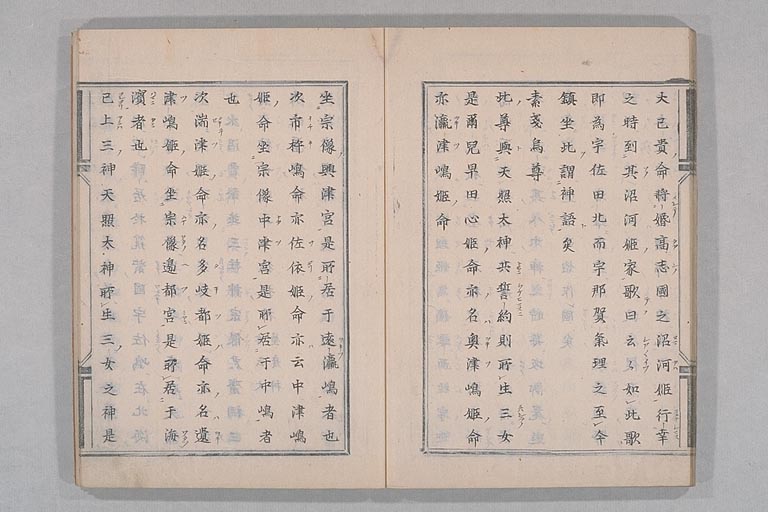 大己貴命將婚高志國之沼河姬行幸
之時到其沼河姬家歌曰云々如此歌
即為宇佐田比而宇那賀氣理之至今
鎮坐此謂神語矣
素戔烏尊
此尊與天照太神共誓約則所生三女
是爾兒早田心姬命亦名奧津嶋姬命
亦瀛津嶋姬命
坐宗像興津宮是所居于遠瀛嶋者也
次市杵嶋命亦佐依姬命亦云中津嶋
姬命坐宗像中津宮是所居于中嶋者
也
次湍津姬命亦名多岐都姬命亦名邊
津嶋姬命坐宗像邊都宮是所居于海
濱者也
已上三神天照太神所生三女之神是